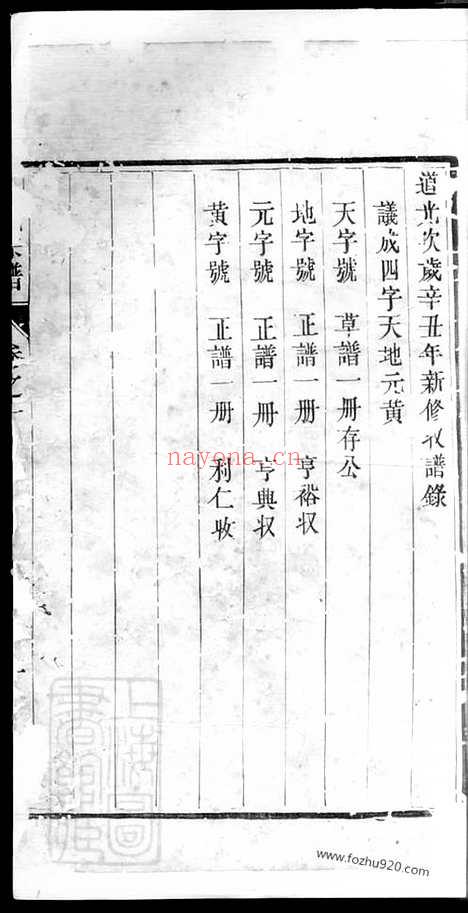 道光次歲辛丑年新修收譜錄
議成四字天地元黄
天字號 草譜一册存公
地字號 正譜一册 亨裕収
元字號 正譜一册 亨興収
黄字號 正譜一册 利仁收
譜
卷之一
nayona.cn
上海圖書館藏
www.fozhu920.com